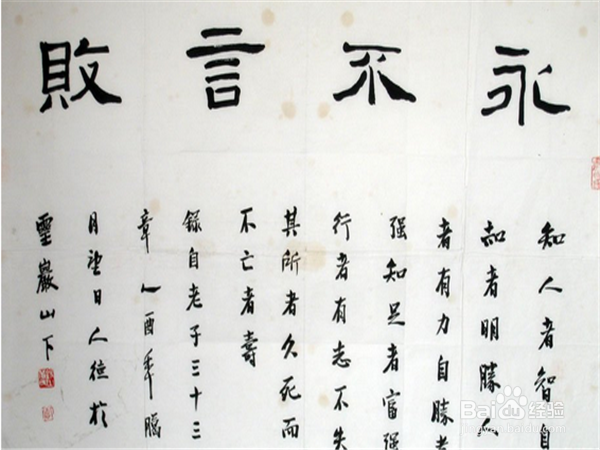 永不言敗
知人者智自
知者明勝人
者有力自勝者
强知足者富强
行者有志不失
其所者久死而
不亡者壽
錄自老子三十三
章乙酉年臘
月望日人於
靈巖山下
Baidu经验
jingyan.baidu.com